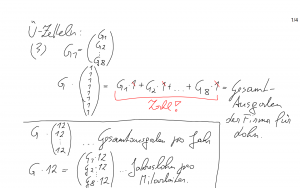 1/4
Ü-Zetteln:
(3) G₁ = (G₁ G₂ ⋮ G8)
G · (1 1 1 1 1 1 1 1) = G₁·1 + G₂·1 + ... + G8·1 = Gesamt-
Ausgaben
der Firma für
Lohn.
Zahl!
G · (12 12 ⋮ 12) ... Gesamtausgaben pro Jahr
G · 12 = (G₁·12 G₂·12 ⋮ G8·12) ... Jahreslohn pro
Mitarbeiter.